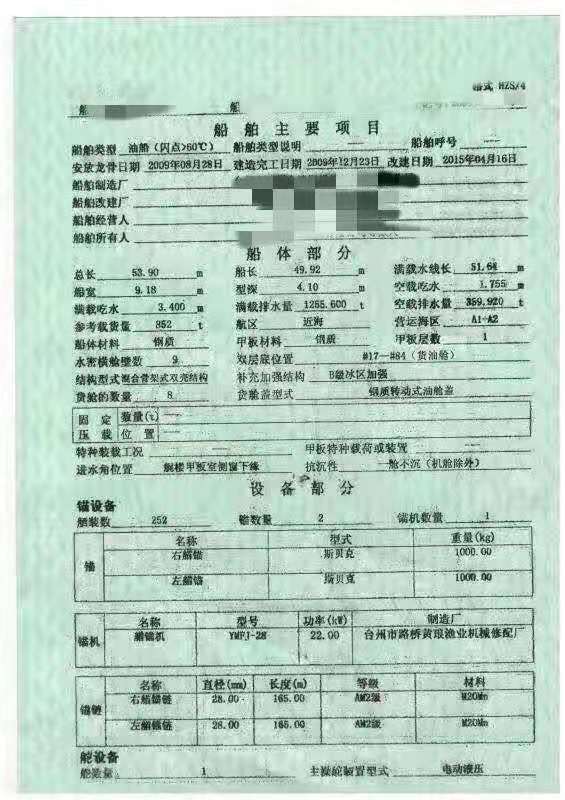 格式 HZS/4
船 船
船舶主要项目
船舶类型 油船(闪点>60℃) 船舶类型说明 —— 船舶呼号 ——
安放龙骨日期 2009年08月28日 建造完工日期 2009年12月23日 改建日期 2015年04月16日
船舶制造厂
船舶改建厂
船舶经营人
船舶所有人
船体部分
总长 53.90 m 船长 49.92 m 满载水线长 51.64 m
船宽 9.18 m 型深 4.10 m 空载吃水 1.755 m
满载吃水 3.400 m 满载排水量 1255.600 t 空载排水量 359.920 t
参考载货量 852 t 航区 近海 营运海区 A1-A2
船体材料 钢质 甲板材料 钢质 甲板层数 1
水密横舱壁数 9 双层底位置 #17-#84(货油舱)
结构型式 混合骨架式双壳结构 补充加强结构 B级冰区加强
货舱的数量 8 货舱盖型式 钢质转动式油舱盖
固定 数量(t) ——
压载 位置 ——
特种装载工况 —— 甲板特种载荷或装置 ——
进水角位置 艉楼甲板室侧窗下缘 抗沉性 一舱不沉(机舱除外)
设备部分
锚设备
舾装数 252 锚数量 2 锚机数量 1
名称 型式 重量(kg)
锚 右艏锚 斯贝克 1000.00
左艏锚 斯贝克 1000.00
名称 型号 功率(kW) 制造厂
锚机 艏锚机 YMFJ-28 22.00 台州市路桥黄琅渔业机械修配厂
名称 直径(mm) 长度(m) 等级 材料
锚链 右艏锚链 28.00 165.00 AM2级 M20Mn
左艏锚链 28.00 165.00 AM2级 M20Mn
舵设备
舵数量 1 主操舵装置型式 电动液压